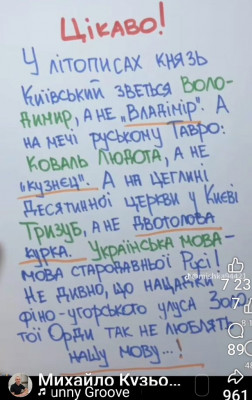 Цікаво!
У літописах князь
Київський зветься Воло-
димир, а не „Владімір". А
на мечі руському тавро:
Коваль Людота, а не
„кузнєц". А на цеглині
Десятинної церкви у Києві
Тризуб, а не двоголова
курка. Українська мова –
мова стародавньої Русі!
Не дивно, що нащадки
фіно-угорського улуса Золо
тої Орди так не люблять
нашу мову...!
7 23
89
961
Михайло Кузьо...
unny Groove